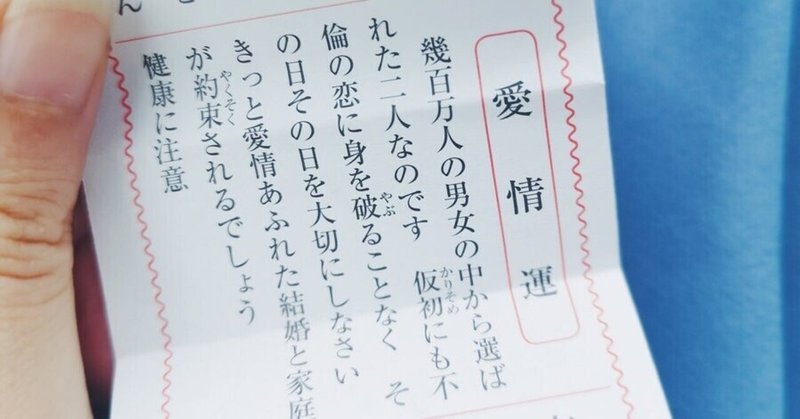 愛情運
幾百万人の男女の中から選ば
かりそめ
れた二人なのです　仮初にも不
やぶ
倫の恋に身を破ることなく　そ
の日その日を大切にしなさい
きっと愛情あふれた結婚と家庭
やくそく
が約束されるでしょう
健康に注意
ん